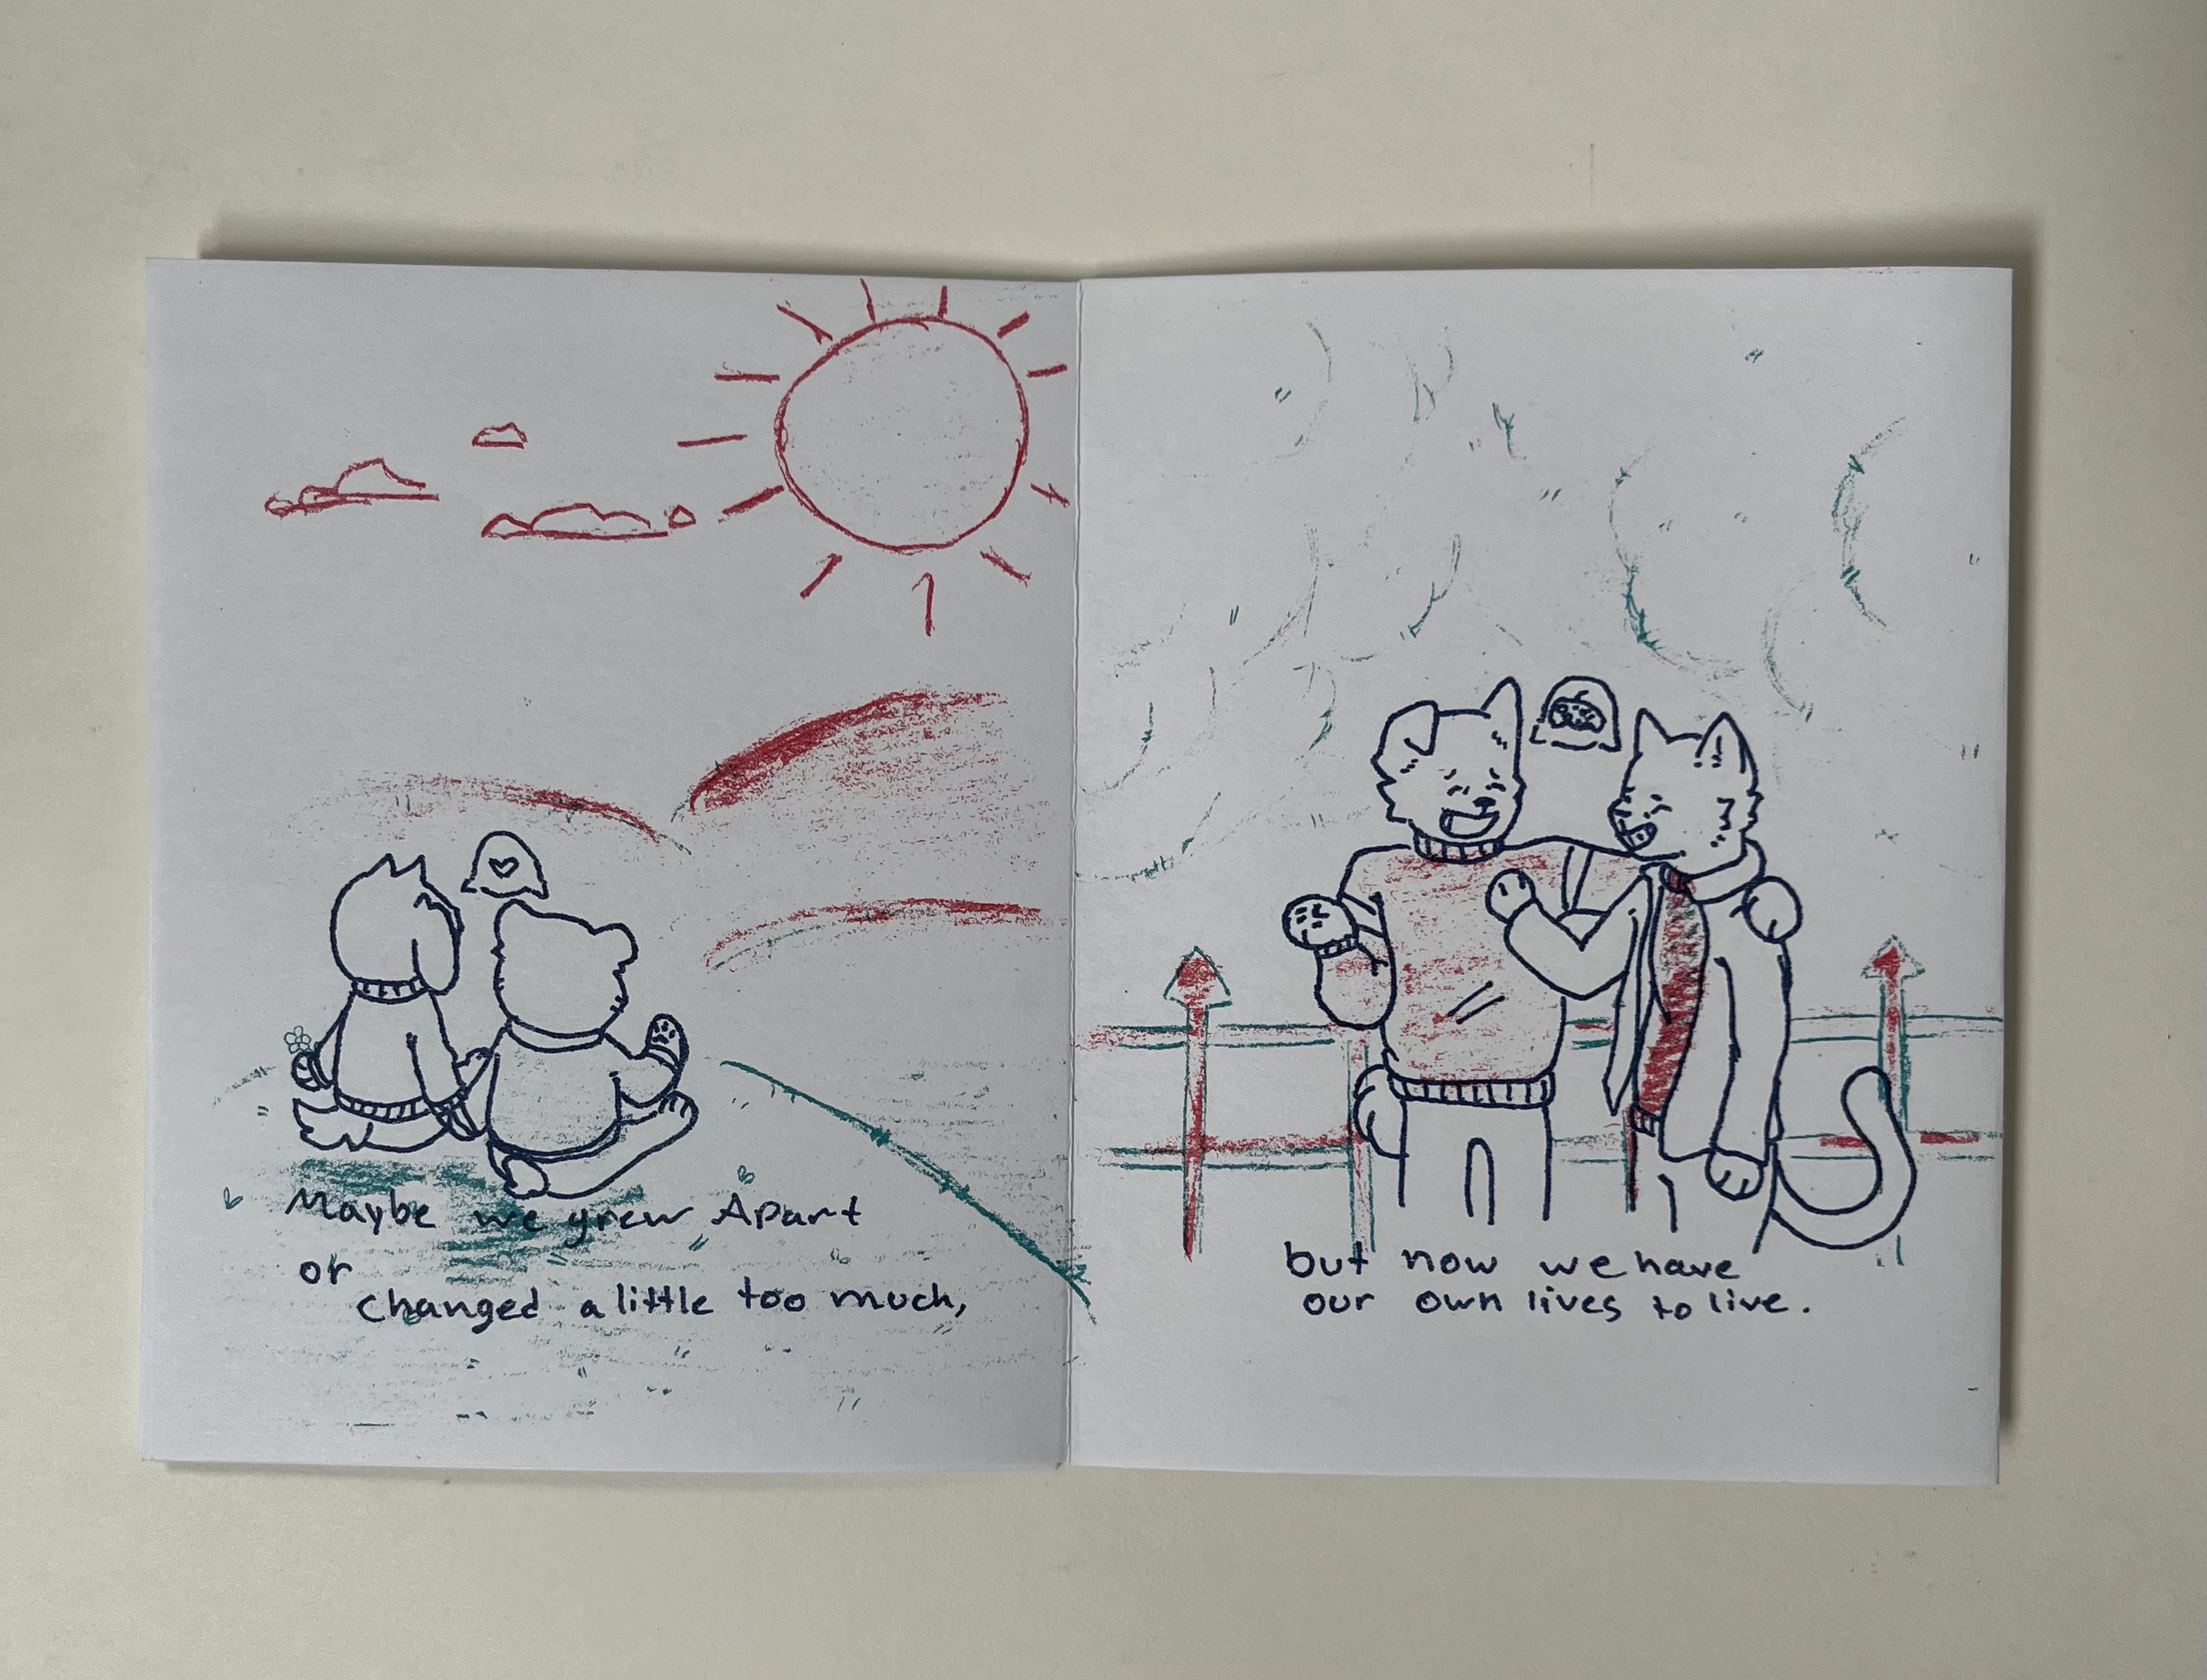 Maybe we grew Apart
or
changed a little too much,
but now we have
our own lives to live.